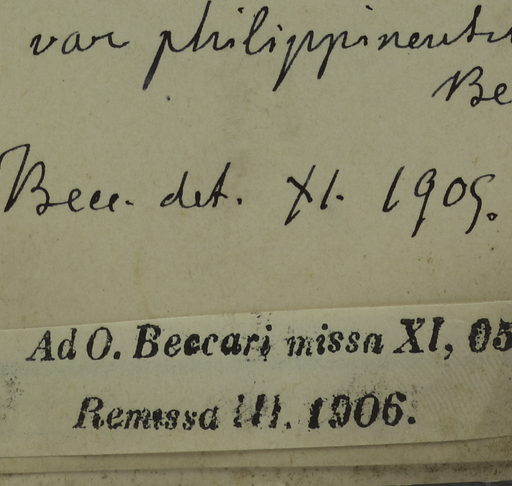 var philippinensis
Be
Becc. det. XI. 1905.
Ad O. Beccari missa XI, 05
Remissa III. 1906.